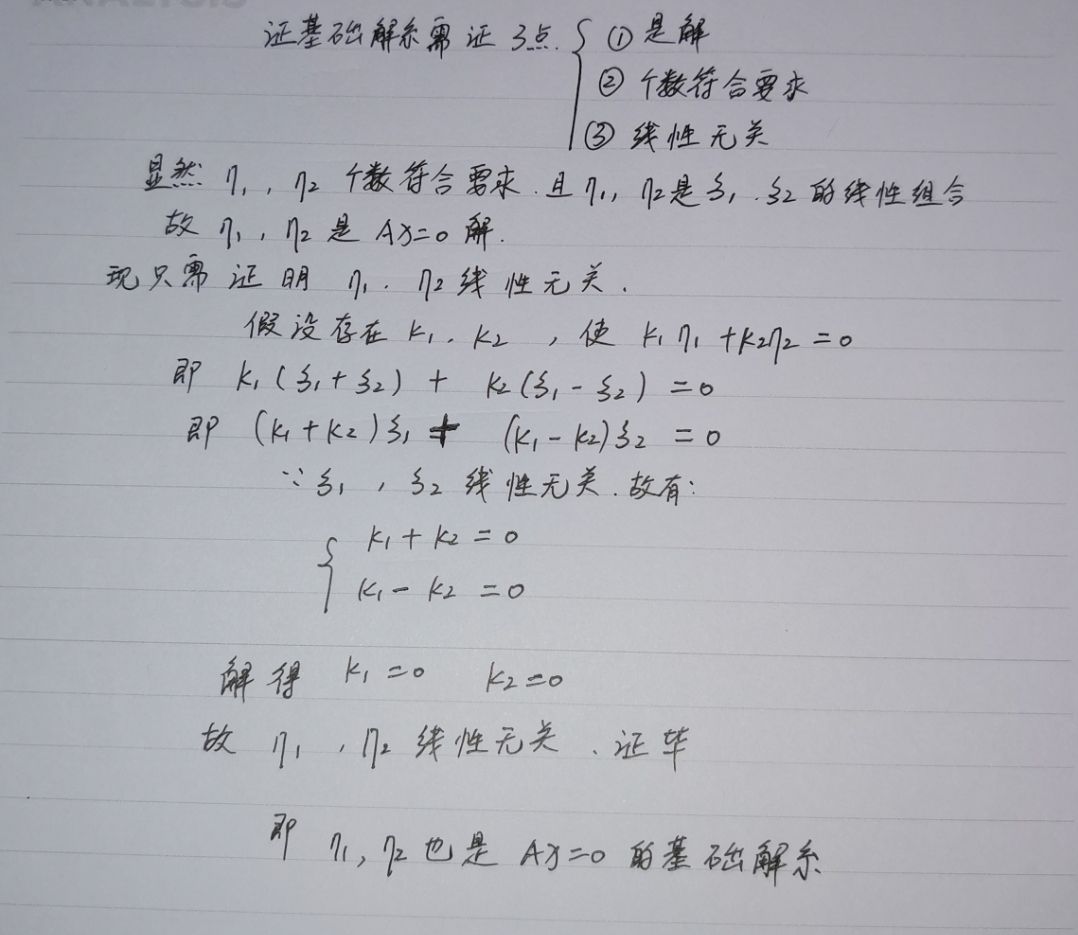 证基础解系需证3点 { ① 是解
② 个数符合要求
③ 线性无关
显然 η₁, η₂ 个数符合要求. 且 η₁, η₂是 ξ₁. ξ₂ 的线性组合
故 η₁, η₂ 是 Ax=0 解.
现只需证明 η₁. η₂ 线性无关.
假设存在 k₁. k₂ , 使 k₁η₁ + k₂η₂ = 0
即 k₁(ξ₁+ξ₂) + k₂(ξ₁-ξ₂) = 0
即 (k₁+k₂)ξ₁ + (k₁-k₂)ξ₂ = 0
∵ ξ₁, ξ₂ 线性无关. 故有:
{ k₁ + k₂ = 0
k₁ - k₂ = 0
解得 k₁ = 0 k₂ = 0
故 η₁, η₂ 线性无关、证毕
即 η₁, η₂ 也是 Ax=0 的基础解系